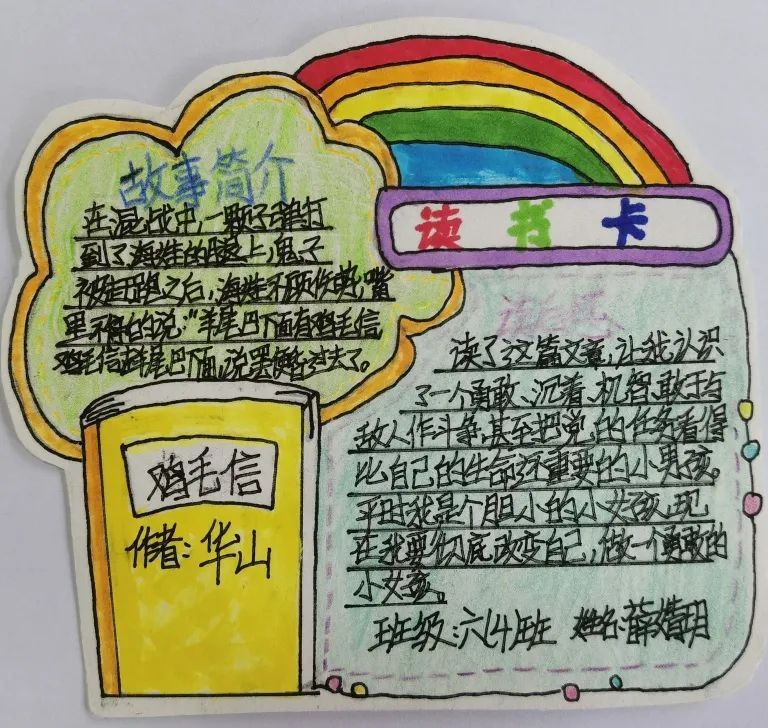 读书卡
故事简介
在混战中,一颗子弹打
到了海娃的腿上,鬼子
被赶跑之后,海娃不顾伤势,嘴
里不停的说:"羊尾巴下面有鸡毛信
鸡毛信羊尾巴下面,说罢便昏过去了。
鸡毛信
作者:华山
读后感
读了这篇文章,让我认识
了一个勇敢、沉着、机智、敢于与
敌人作斗争,甚至把党的任务看得
比自己的生命还重要的小男孩。
平时我是个胆小的小女孩,现
在我要彻底改变自己,做一个勇敢的
小女孩。
班级:六(4)班 姓名:薛婧玥